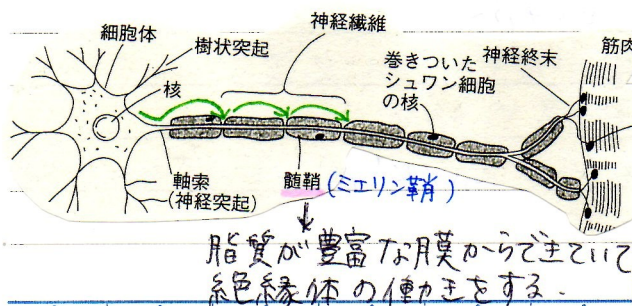 細胞体
樹状突起
神経繊維
核
巻きついた
シュワン細胞
の核
神経終末
筋肉
軸索
(神経突起)
髄鞘 (ミエリン鞘)
脂質が豊富な膜からできていて
絶縁体の働きをする.